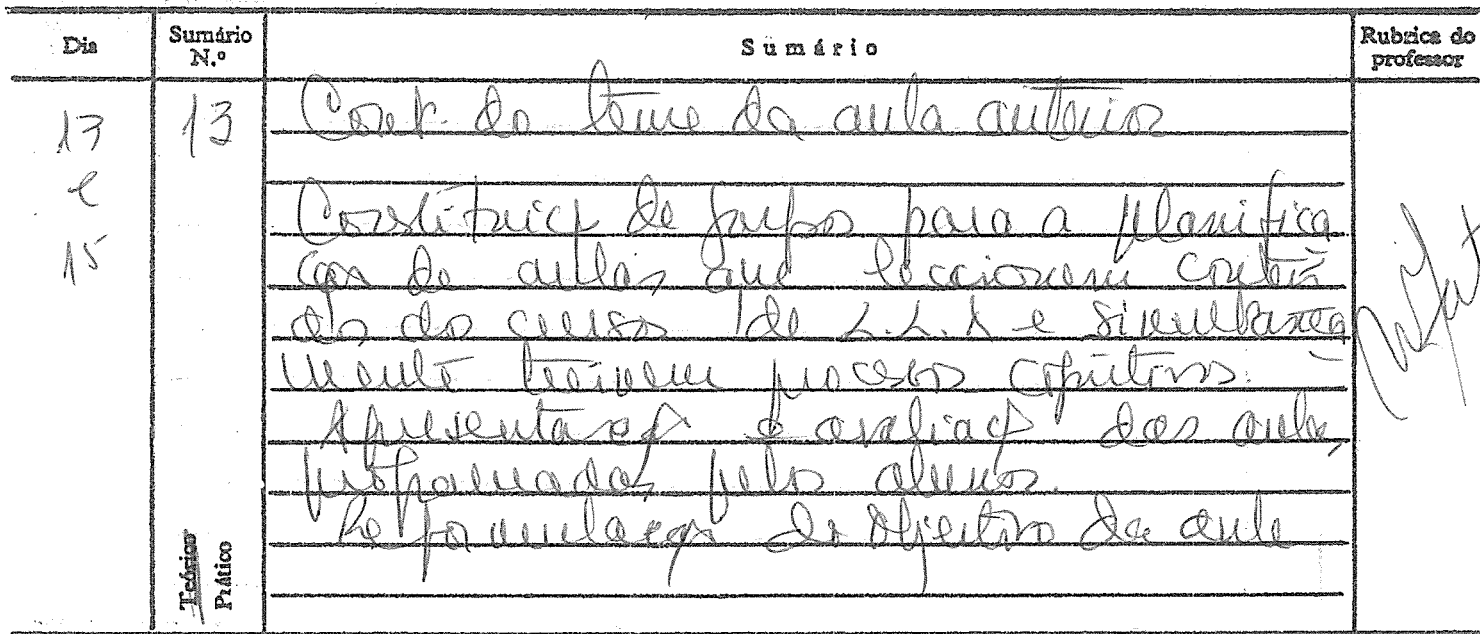 Dia Sumário N.º Sumário Rubrica do professor
13 e 15 13 Cont. do tema da aula anterior
Constituiçã de grupos para a planifica
ção de aulas que leccionem conteú
dos do curso de L.L.
e simultanea
mente treinem processos cognitivos.
Apresentação e avaliaçã das aulas
programadas pelos alunos.
Reformulação do objectivo da aula
Teórico
Prático